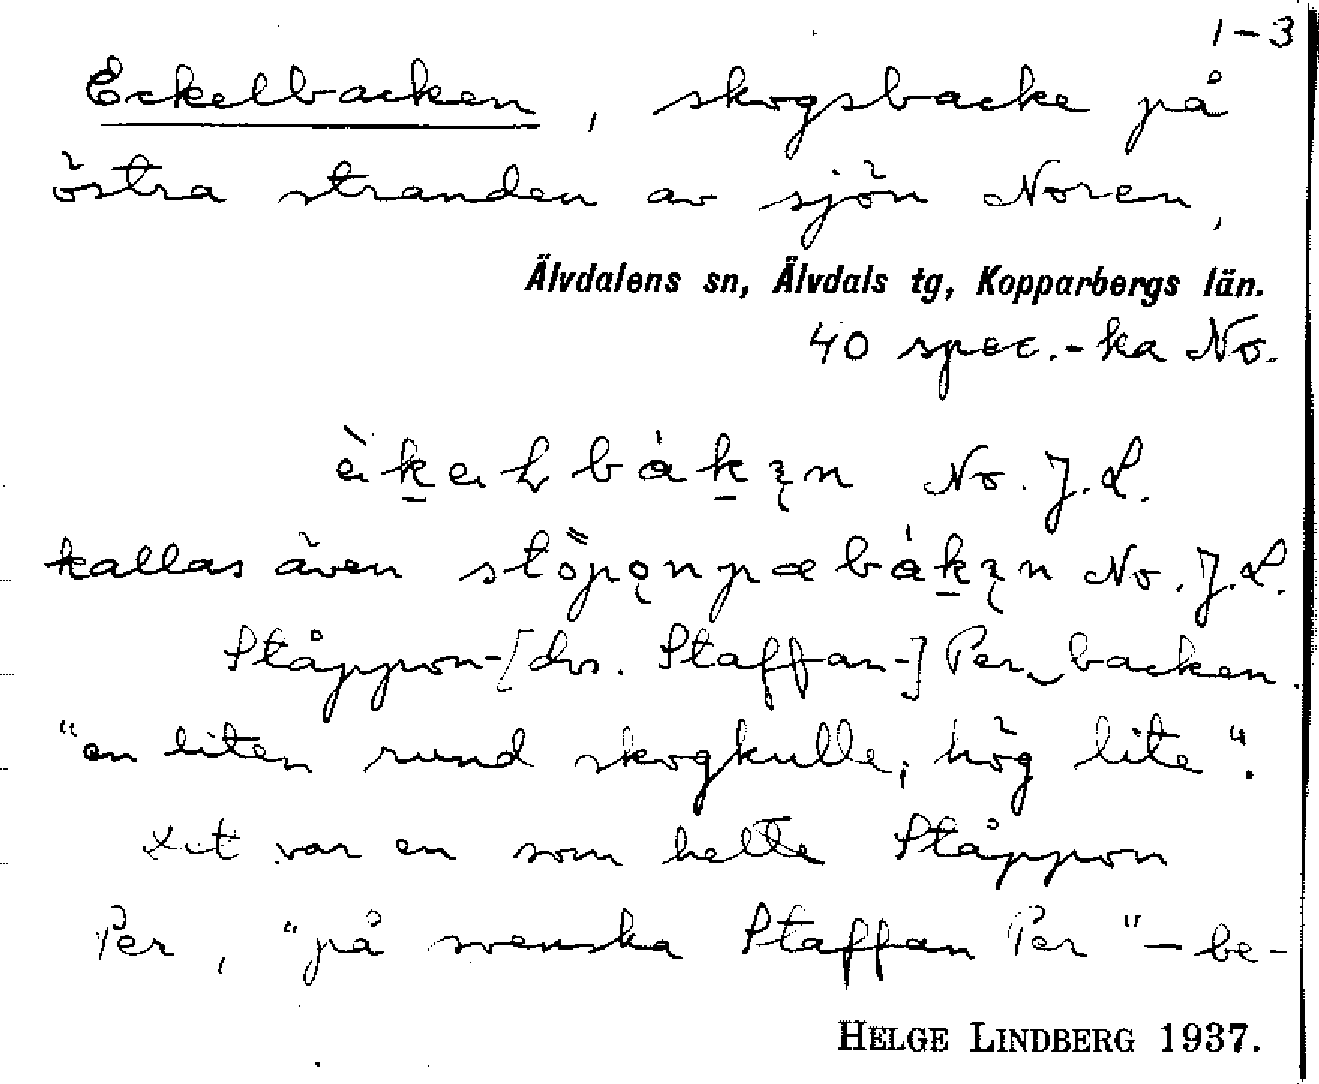 1-3
Eckelbacken, skogsbacke på
östra stranden av sjön Noren,
Älvdalens sn, Älvdals tg, Kopparbergs län.
40 spec.-ka No.
No. J.L.
kallas även No. J.L.
Ståppon-[dvs. Staffan-] Per backen.
"en liten rund skogkulle, hög lite".
var en som hette Ståppon
Per, "på svenska Staffan Per" – be-
HELGE LINDBERG 1937.